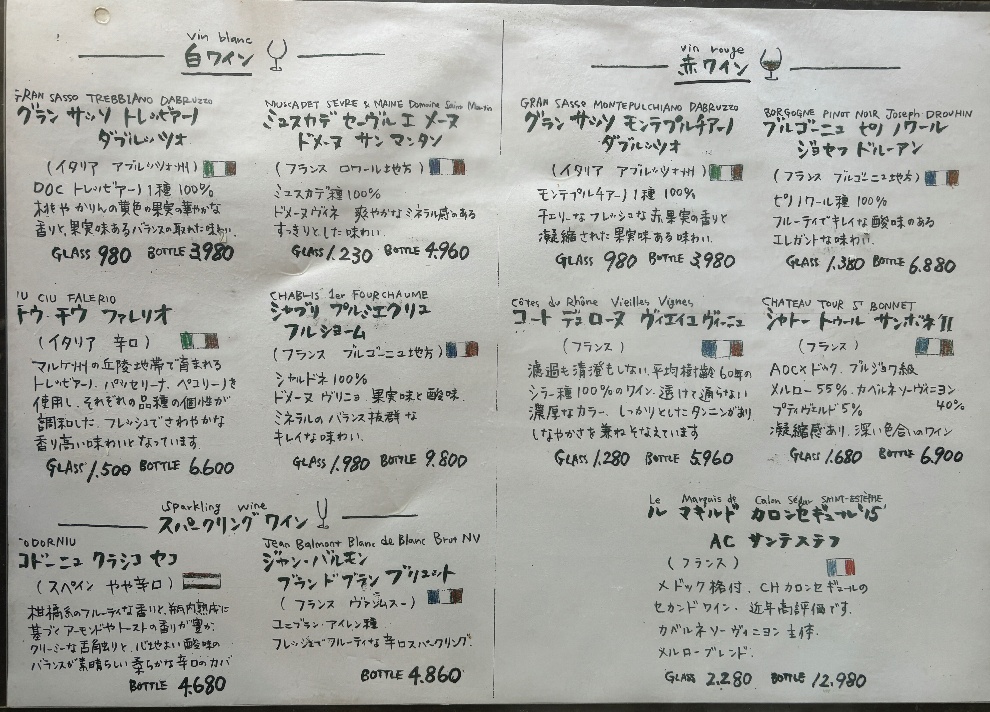 vin blanc
白ワイン
GRAN SASSO TREBBIANO DABRUZZO
グラン サッソ トレッビアーノ
ダブルッツオ
(イタリア アブルッツオ州)
DOC トレッビアーノ1種 100%
桃や かりんの黄色の果実の華やかな
香りと、果実味あるバランスの取れた味わい.
GLASS 980 BOTTLE 3.980
MUSCADET SEVRE & MAINE Domaine Saint Martin
ミュスカデ セーヴル エ メーヌ
ドメーヌ サン マンタン
(フランス ロワール地方)
ミュスカデ種100%
ドメーヌヴィネ 爽やかなミネラル感のある
すっきりとした味わい.
GLASS 1.230 BOTTLE 4.960
IU CIU FALERIO
チウ チウ ファレリオ
(イタリア 辛口)
マルケ州の丘陵地帯で育まれる
トレッビアーノ. パッセリーナ. ペコリーノを
使用し、それぞれの品種の個性が
調和した、フレッシュでさわやかな
香り高い味わいとなっています.
GLASS 1.500 BOTTLE 6.600
CHABLIS 1er FOURCHAUME
シャブリ プルミエクリュ
フルショーム
(フランス ブルゴーニュ地方)
シャルドネ 100%
ドメーヌ ヴリニョ. 果実味と酸味.
ミネラルの バランス抜群な
キレイな味わい.
GLASS 1.980 BOTTLE 9.800
sparkling wine
スパークリング ワイン
CODORNIU
コドーニュ クラシコ セコ
(スペイン やや辛口)
柑橘系のフルーティな香りと、瓶内熟成に
基づくアーモンドやトーストの香りが豊か.
クリーミーな舌触りと、心地よい酸味の
バランスが素晴らしい柔らかな辛口のカバ
BOTTLE 4.680
Jean Balmont Blanc de Blanc Brut NV
ジャン・バルモン
ブラン ド ブラン ブリュット
(フランス ヴァンムスー)
ユニブラン・アイレン種
フレッシュでフルーティな辛口スパークリング.
BOTTLE 4.860
vin rouge
赤ワイン
GRAN SASSO MONTEPULCHIANO DABRUZZO
グラン サッソ モンテプルチアーノ
ダブルッツオ
(イタリア アブルッツオ州)
モンテプルチアーノ1種 100%
チェリーなフレッシュな赤果実の香りと
凝縮された果実味ある味わい.
GLASS 980 BOTTLE 3.980
BORGOGNE PINOT NOIR Joseph DROUHIN
ブルゴーニュ ピノ ノワール
ジョセフ ドルーアン
(フランス ブルゴーニュ地方)
ピノノワール種 100%
フルーティでキレイな酸味のある
エレガントな味わい.
GLASS 1.380 BOTTLE 6.880
Côtes du Rhône Vieilles Vignes
コート デュ ローヌ ヴィエイユ ヴィーニュ
(フランス)
濾過も清澄もしない. 平均樹齢60年の
シラー種100%のワイン. 透けて通らない
濃厚なカラー. しっかりとしたタンニンがあり
しなやかさを兼ねそなえています
GLASS 1.280 BOTTLE 5.960
CHATEAU TOUR St BONNET
シャトー トゥール サンボネ'11
(フランス)
AOC×ドック. ブルジョワ級
メルロー 55%. カベルネソーヴィニヨン
40%
プティヴェルド 5%
凝縮感あり. 深い色合いのワイン
GLASS 1.680 BOTTLE 6.900
Le Marquis de Calon Ségur SAINT-ESTÈPHE
ル マキルド カロンセギュール'15'
AC サンテステフ
(フランス)
メドック格付. CHカロンセギュールの
セカンドワイン. 近年高評価です.
カベルネソーヴィニヨン主体.
メルローブレンド.
GLASS 2.280 BOTTLE 12.980